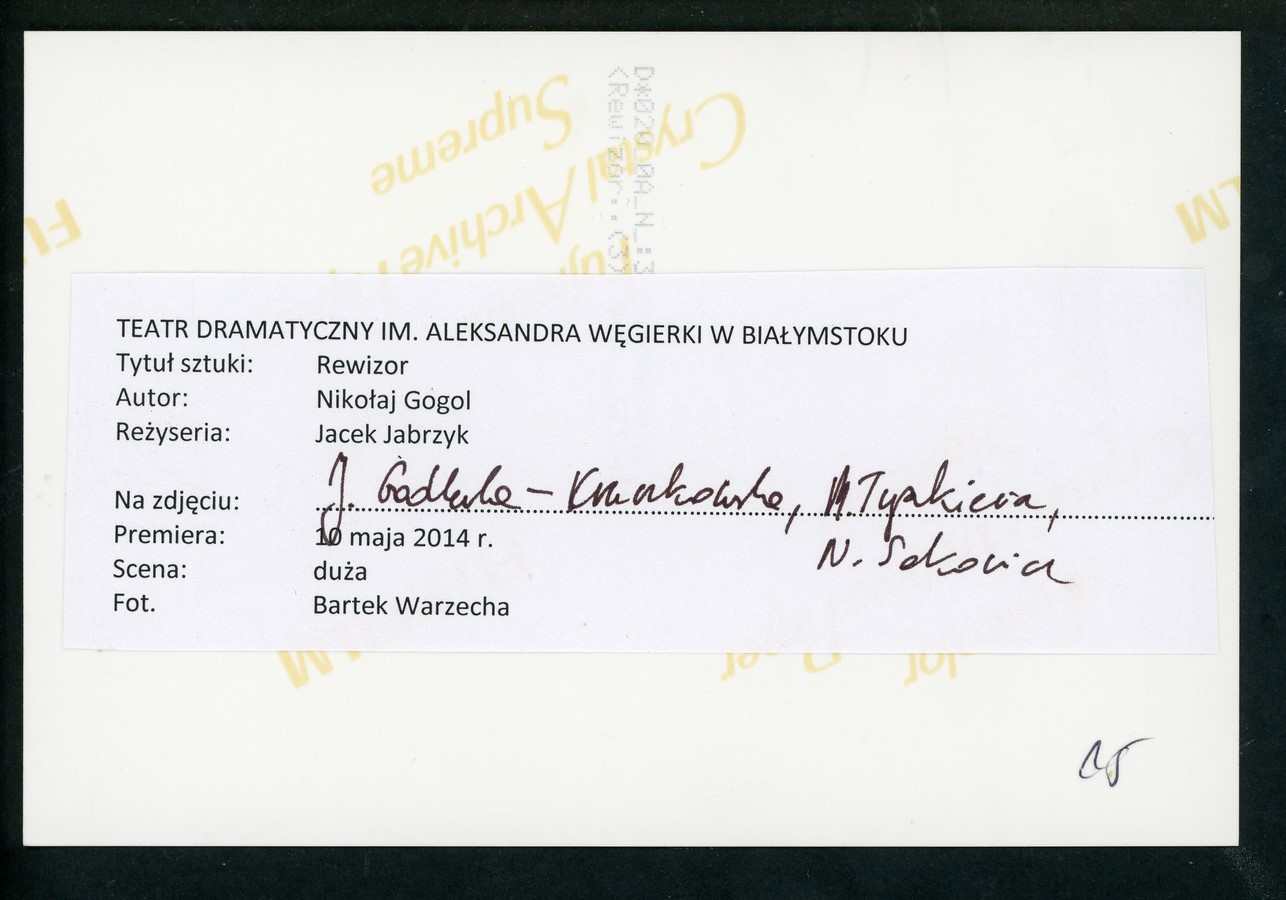 Crystal Archive
Supreme
D*020 0A_N_:3
<Rewizor..(3)
TEATR DRAMATYCZNY IM. ALEKSANDRA WĘGIERKI W BIAŁYMSTOKU
Tytuł sztuki: Rewizor
Autor: Nikołaj Gogol
Reżyseria: Jacek Jabrzyk
Na zdjęciu: J. , N. Sokovicz
Premiera: 10 maja 2014 r.
Scena: duża
Fot. Bartek Warzecha